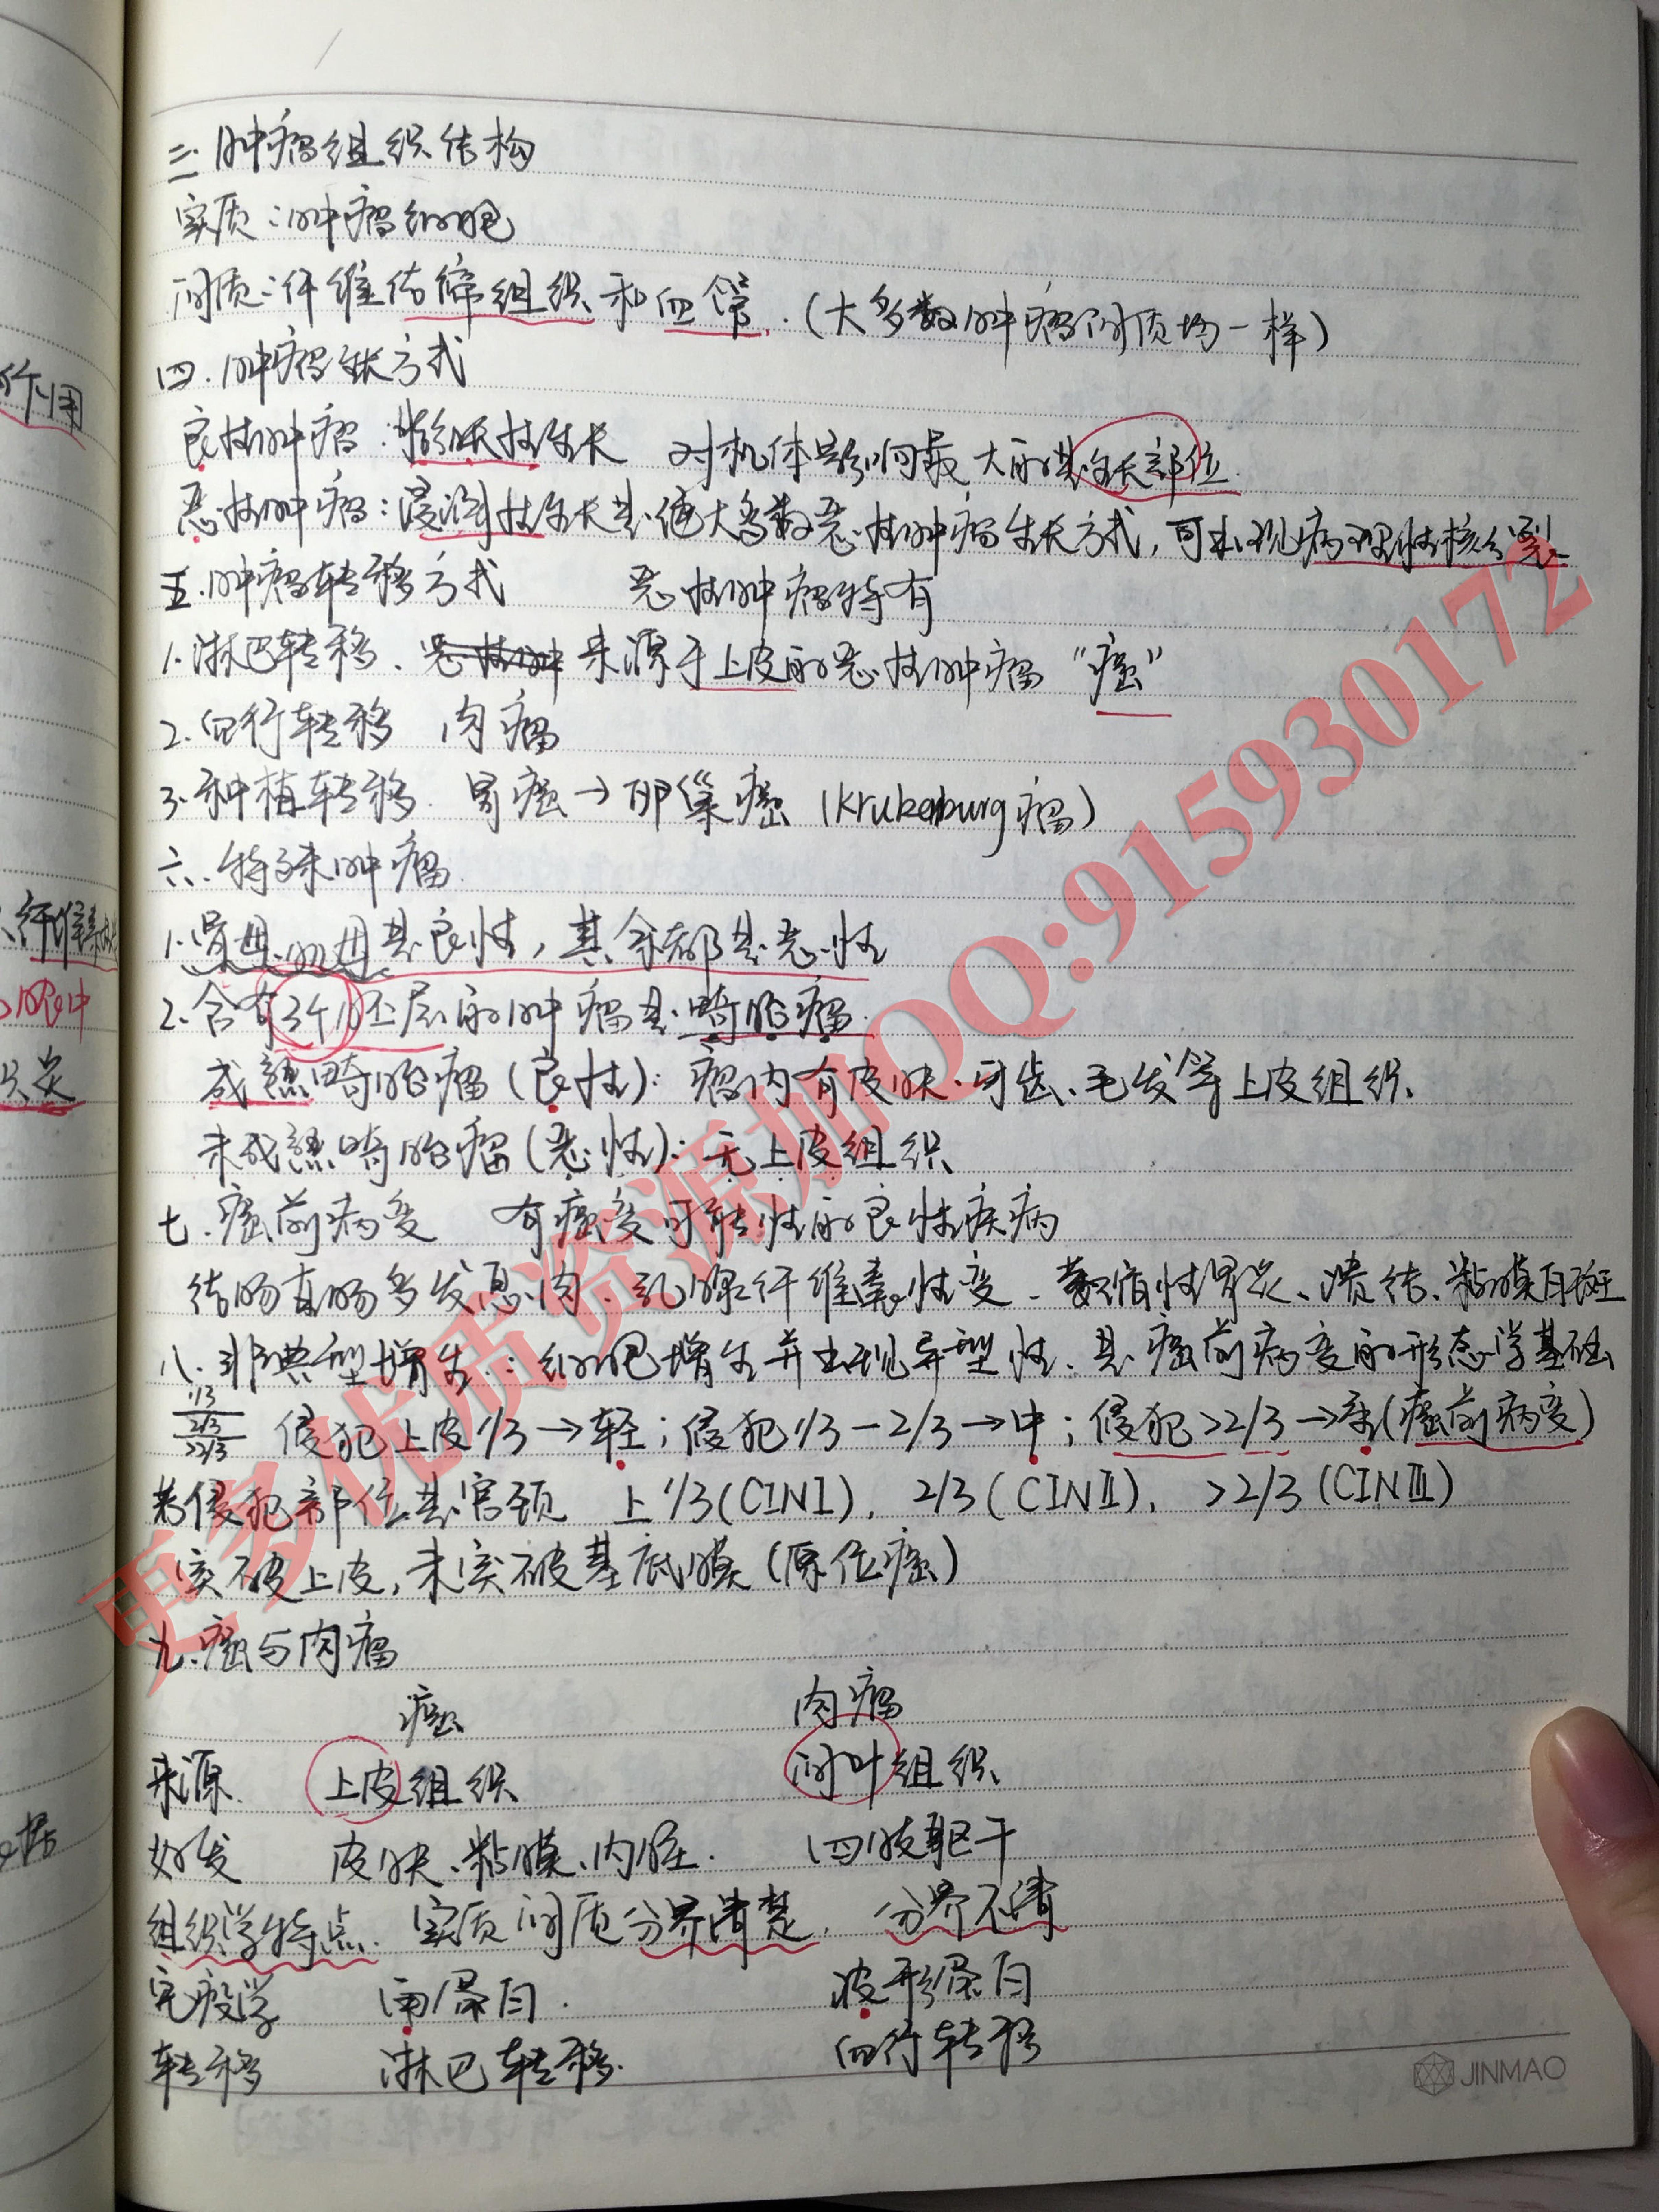 三.肿瘤组织结构
实质:肿瘤细胞
间质:纤维结缔组织和血管.(大多数肿瘤间质均一样)
四.肿瘤生长方式
良性肿瘤:膨胀性生长 对机体影响最大的是生长部位.
恶性肿瘤:浸润性生长是绝大多数恶性肿瘤生长方式,可出现病理性核分裂
五.肿瘤转移方式 恶性肿瘤特有
1.淋巴转移. 来源于上皮的恶性肿瘤"癌"
2.血行转移 肉瘤
3.种植转移. 胃癌→卵巢癌(Krukenburg瘤)
六.特殊肿瘤.
1.骨母、肌母是良性,其余都是恶性
2.含有3个胚层的肿瘤是畸胎瘤.
成熟畸胎瘤(良性):瘤内有皮肤.牙齿、毛发等上皮组织.
未成熟畸胎瘤(恶性):无上皮组织
七.癌前病变 有癌变可能性的良性疾病
结肠直肠多发息肉、乳腺纤维囊性变、萎缩性胃炎、溃结、粘膜白斑
八.非典型增生:细胞增生并出现异型性.是癌前病变的形态学基础
1/3
2/3
>2/3
侵犯上皮1/3→轻;侵犯1/3-2/3→中;侵犯>2/3→重(癌前病变)
若侵犯部位是宫颈 上1/3(CINⅠ), 2/3(CINⅡ), >2/3(CINⅢ)
突破上皮,未突破基底膜(原位癌)
九.癌与肉瘤
癌 肉瘤
来源. 上皮组织 间叶组织
好发 皮肤、粘膜、内脏. 四肢躯干
组织学特点. 实质间质分界清楚. 分界不清
免疫学 角蛋白. 波形蛋白
转移 淋巴转移. 血行转移
JINMAO
作用
纤维素
更多优质资源加QQ:915930172